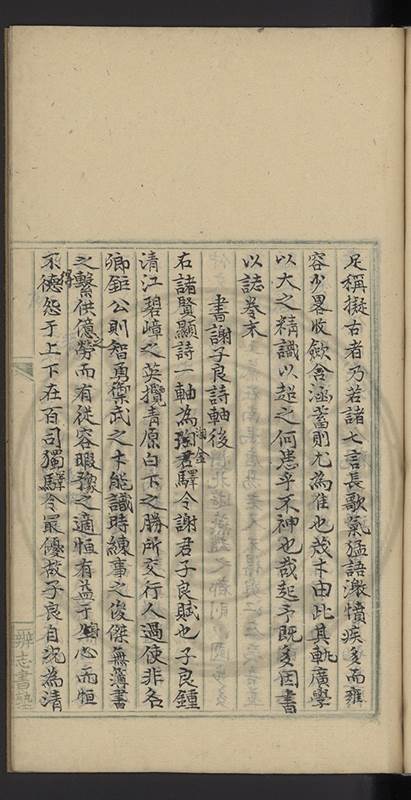 足稱擬古者乃若諸七言長歌氣猛語激憤疾多而雍
容少畧收歛含涵蓄則尤為佳也茂才由此其軌廣學
以大之精識以超之何患乎不神也哉起予既多因書
以誌卷末
書謝子良詩軸後
右諸賢顯詩一軸為陶金驛令謝君子良賦也子良鍾
清江碧嶂之英攬青原白下之勝所交行人過使非名
卿鉅公則智勇禦武之才能識時練事之俊傑無簿書
之繫供億之勞而有從容暇豫之適恒有益于心而恒
不得德怨于上下在百司獨驛令最優故子良自況為清
辨志書塾